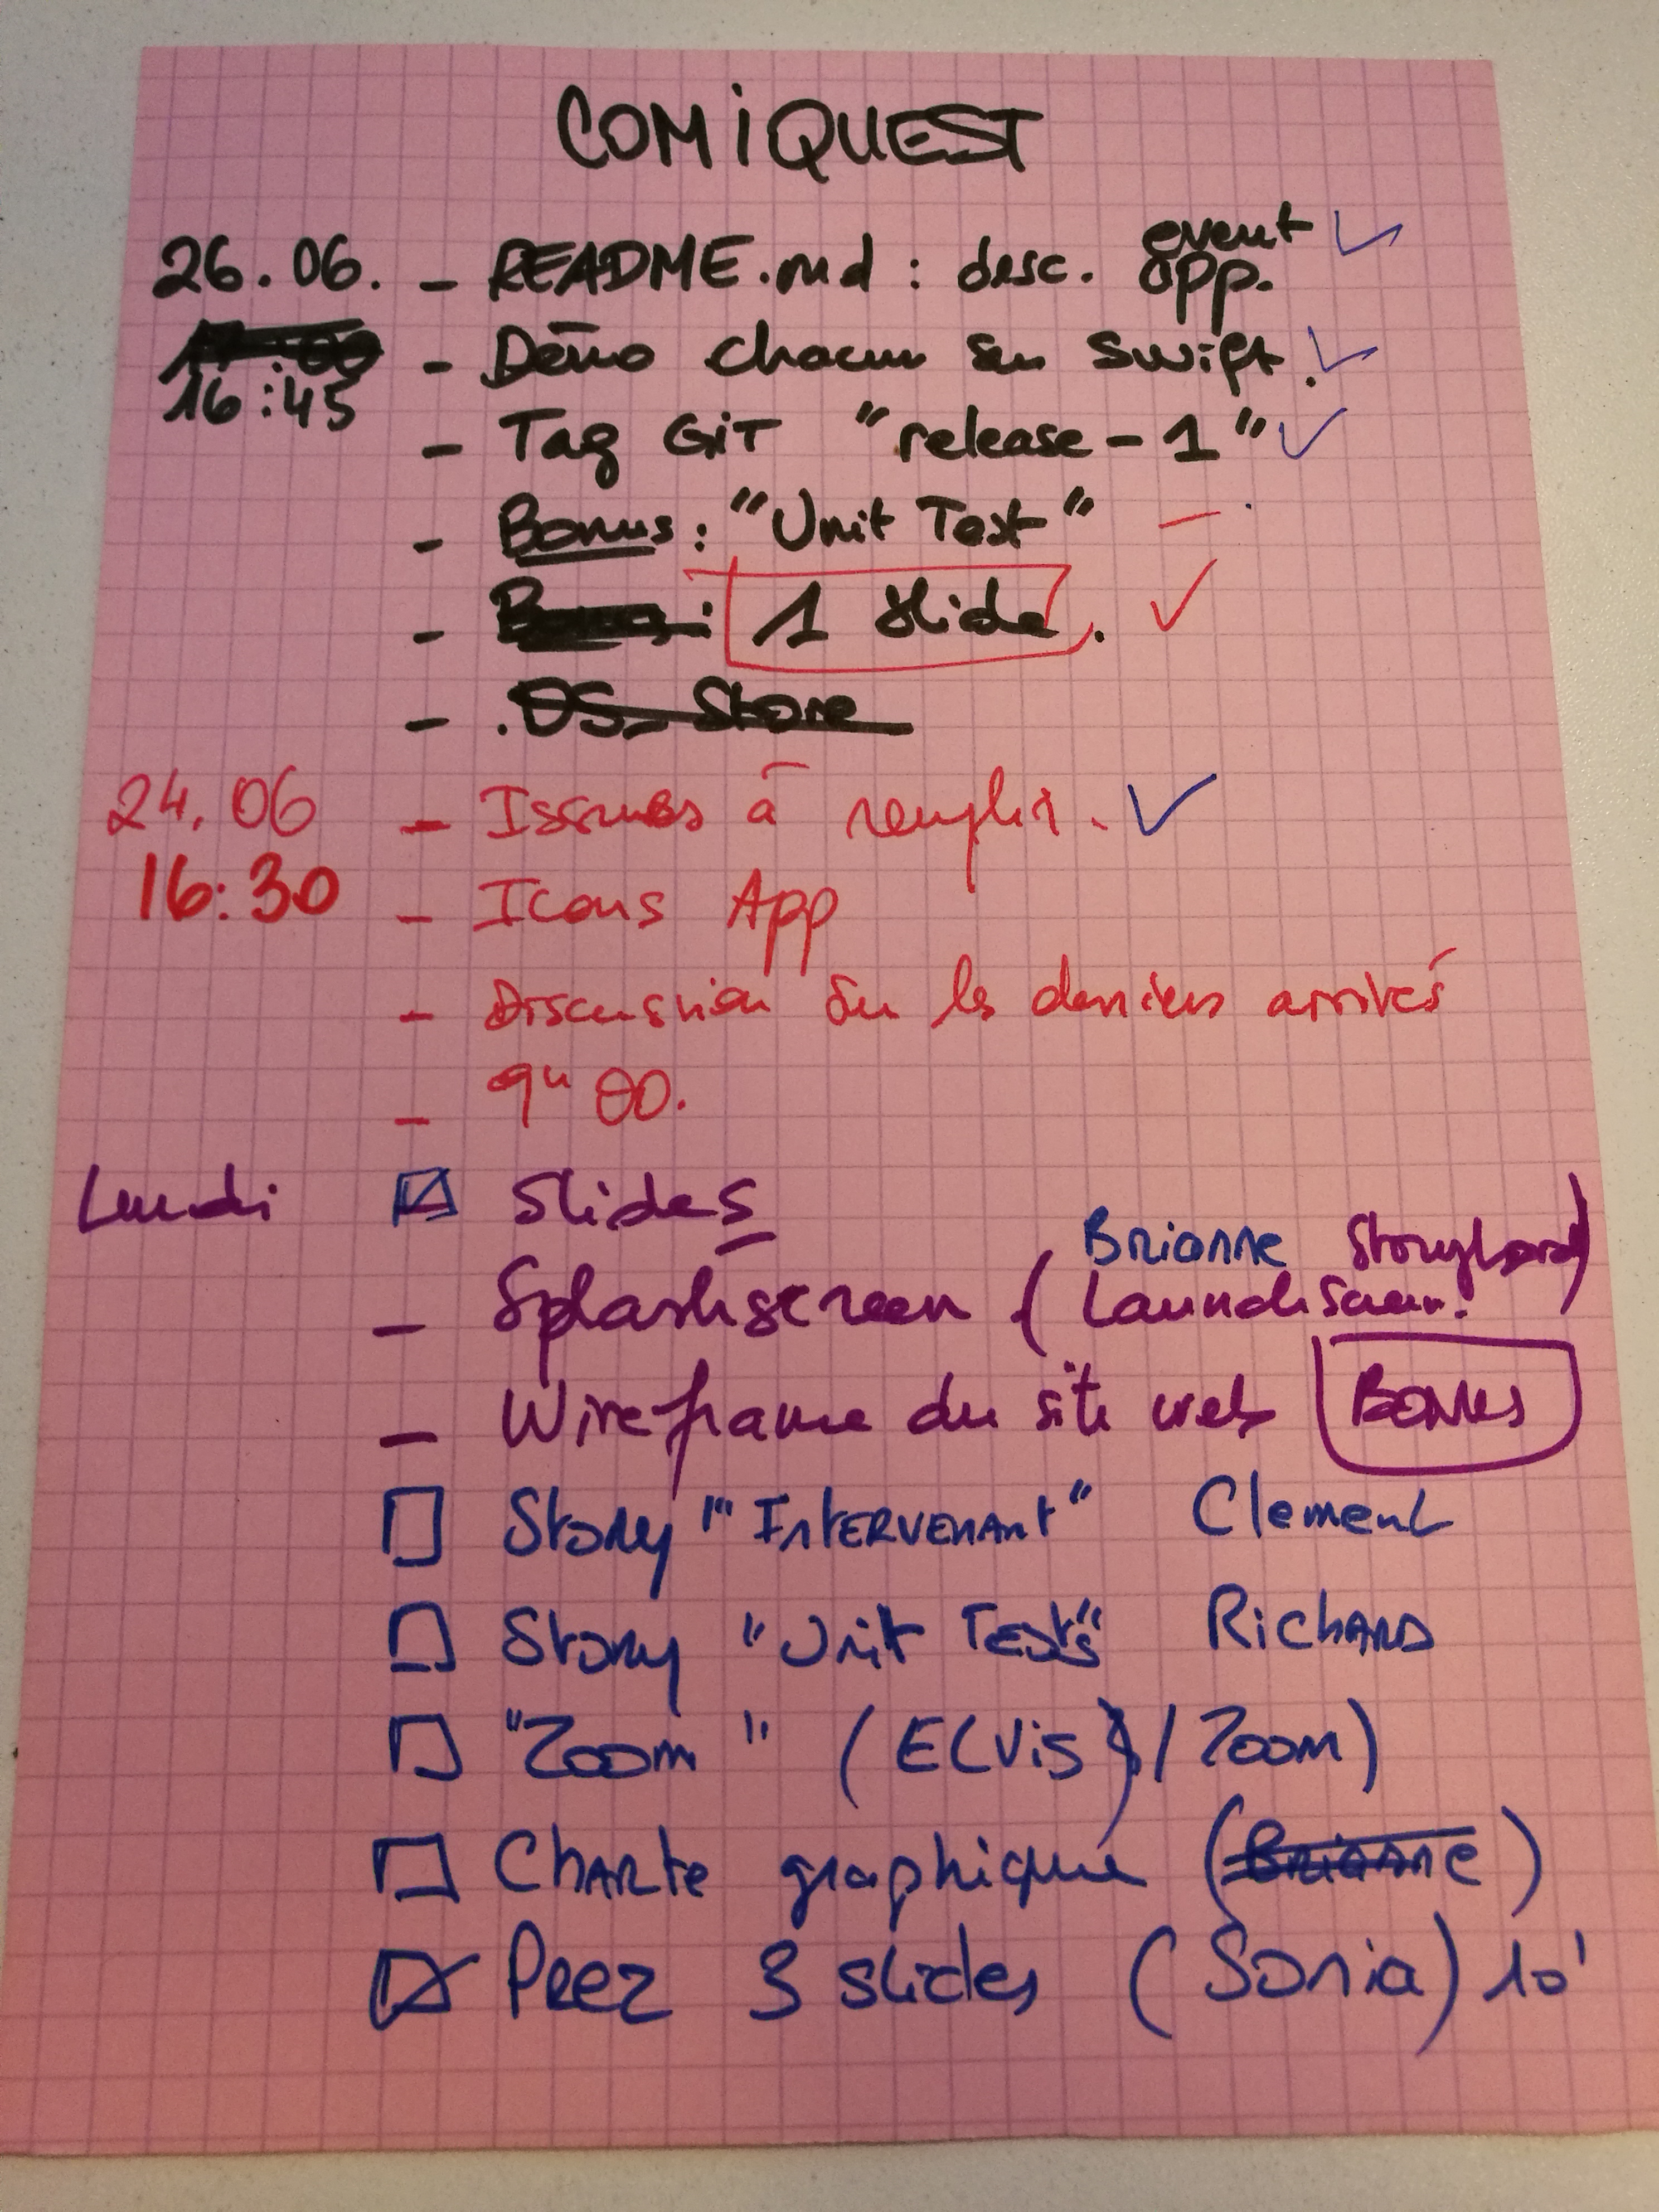 COMIQUEST
26.06. - README.md : desc. event app.
17:00
16:45
- Démo chacun sur Swift.
- Tag GIT "release-1"
- Bonus : "Unit Test" -
- Bonus : 1 Slide.
- .DS_Store
24.06 - Issues à remplir.
16:30 - Icons App
- Discussion sur les derniers arrivés
- 9h 00.
Lundi Slides
- Splashscreen (LaunchScreen. Storyboard) Brianne
- Wireframe du site web BONUS
Story "INTERVENANT" Clement
Story "Unit Tests" RICHARD
"Zoom" (ELVIS) / Zoom)
CHARTE graphique (BRIANNE)
PREZ 3 slides (Sonia) 10'